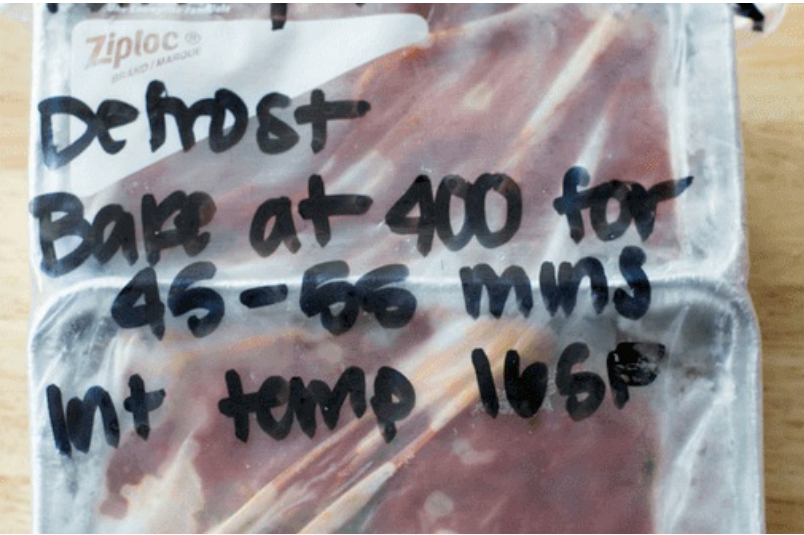 Ziploc ®
BRAND / MARQUE
Defrost
Bake at 400 for
45-55 mins
Int temp 165F